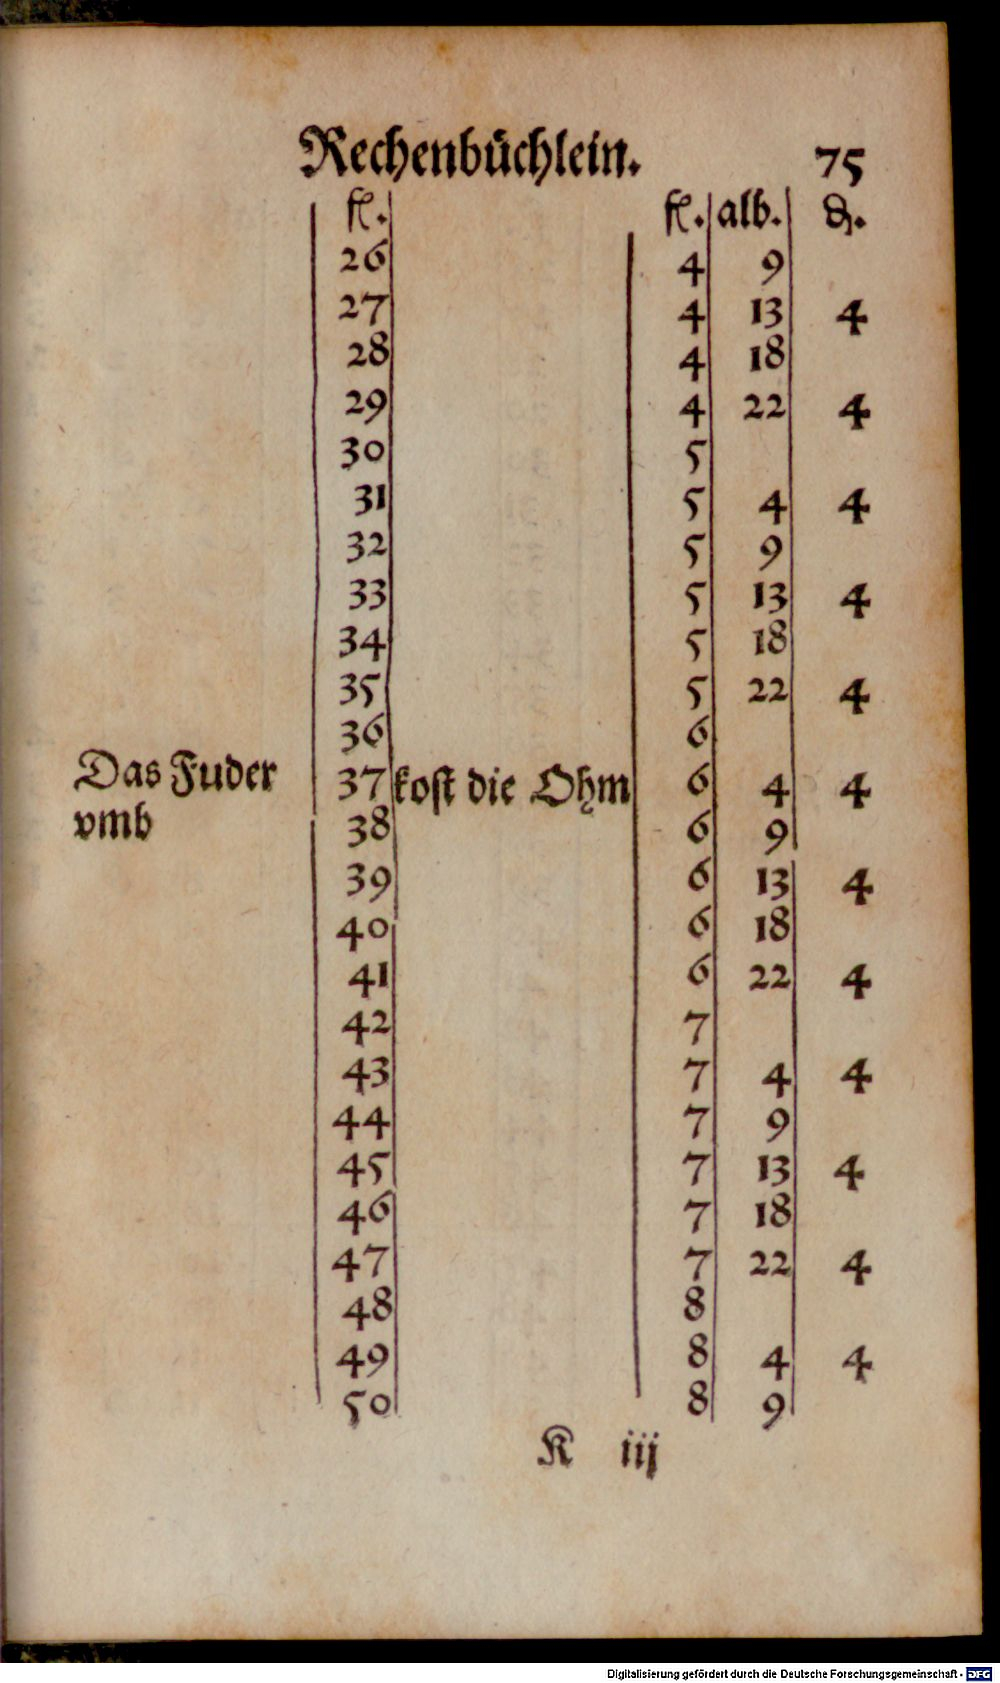 Rechenbüchlein. 75
fl. fl. alb. ₰.
26 4 9
27 4 13 4
28 4 18
29 4 22 4
30 5
31 5 4 4
32 5 9
33 5 13 4
34 5 18
35 5 22 4
36 6
Das Fuder 37 kost die Ohm 6 4 4
vmb 38 6 9
39 6 13 4
40 6 18
41 6 22 4
42 7
43 7 4 4
44 7 9
45 7 13 4
46 7 18
47 7 22 4
48 8
49 8 4 4
50 8 9
K iij
Digitalisierung gefördert durch die Deutsche Forschungsgemeinschaft - DFG